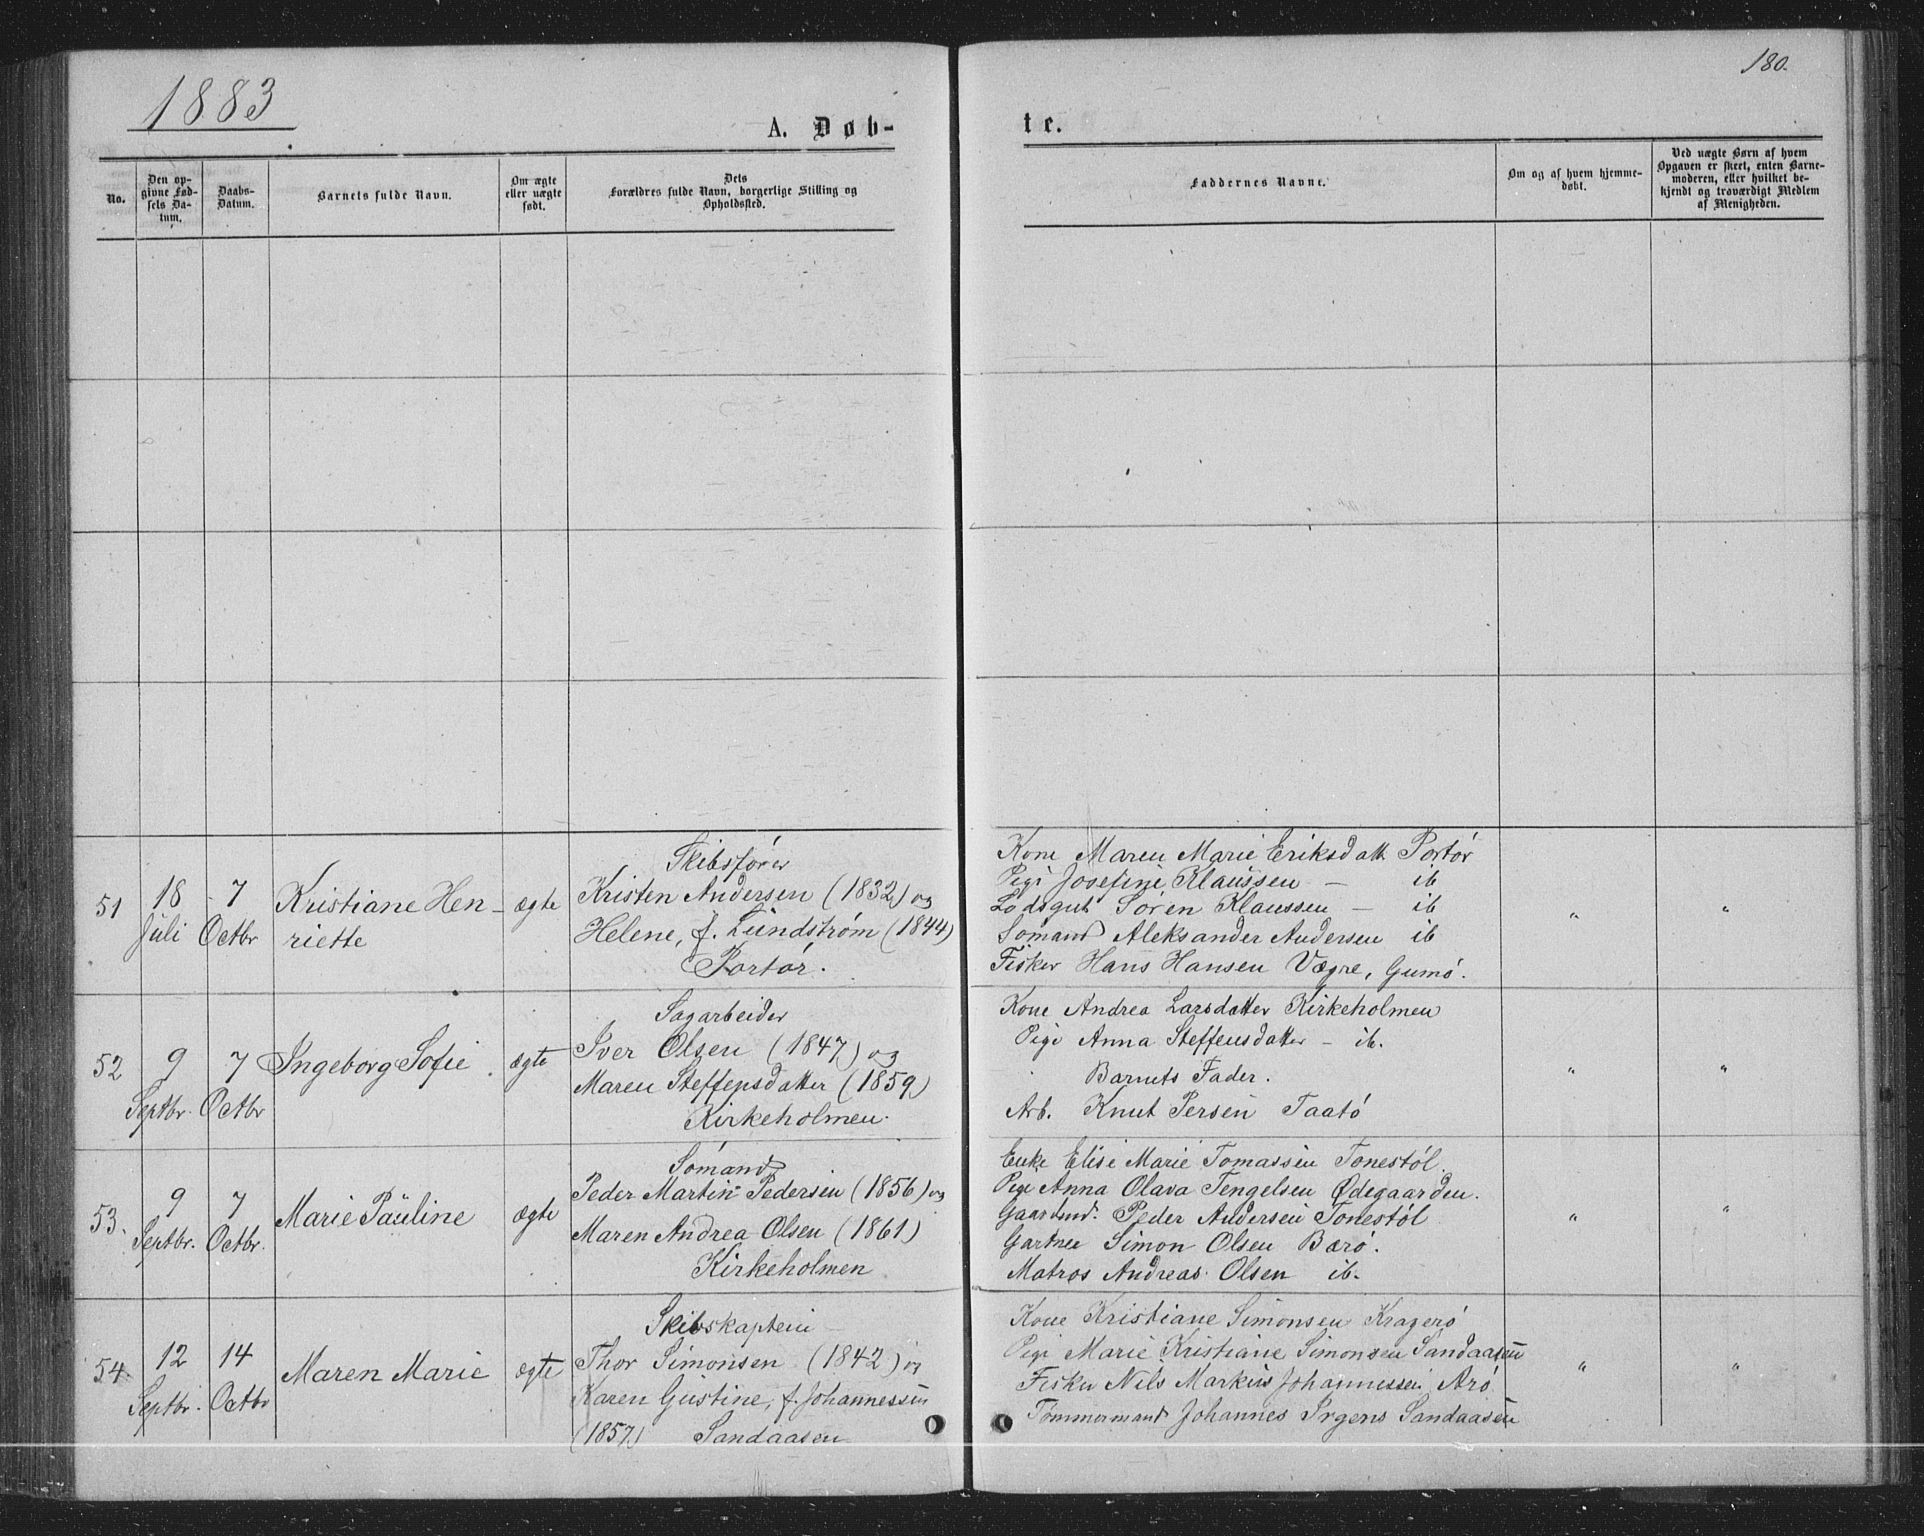 1883
180.
A. Døb-
te.
No.
Den op-
givne Fød-
sels Da-
tum.
Daabs-
Datum.
Barnets fulde Navn.
Om ægte
eller uægte
født.
Dets
Forældres fulde Navn, borgerlige Stilling og
Opholdssted.
Faddernes Navne.
Om og af hvem hjemme-
døbt.
Ved uægte Børn af hvem
Opgaven er skeet, enten Barne-
moderen, eller hvilket be-
kjendt og troværdigt Medlem
af Menigheden.
51
18
Juli
7
Octbr
Kristiane Hen-
riette
ægte
Skibsfører
Kristen Andersen (1832) og
Helene, f. Lundstrøm (1844)
Portør.
Kone Maren Marie Eriksdatt Portør
Pige Josefine Klaussen - ib
Lodsgut Søren Klaussen - ib
Sømand Aleksander Andersen ib
Fisker Hans Hansen Vægre, Gumø.
"
"
52
9
Septbr.
7
Octbr
Ingeborg Sofie
ægte
Sagarbeider
Iver Olsen (1847) og
Maren Steffensdatter (1859)
Kirkeholmen.
Kone Andrea Larsdatter Kirkeholmen
Pige Anna Steffensdatter - ib.
Barnets Fader.
Arb. Knut Persen Taatø
"
"
53.
9
Septbr.
7
Octbr.
Marie Pauline
ægte
Sømand
Peder Martin Pedersen (1856) og
Maren Andrea Olsen (1861)
Kirkeholmen
Enke Elise Marie Tomassen Tonestøl.
Pige Anna Olava Tengelsen Ødegaarden.
Gaardmd. Peder Andersen Tonestøl
Gartner Simon Olsen Bærø.
Matros Andreas Olsen ib.
"
"
54.
12
Septbr.
14
Octbr
Maren Marie
ægte
Skibskaptein
Thor Simonsen (1842) og
Karen Gustine, f. Johannessen
(1857) Sandaasen
Kone Kristiane Simonsen Kragerø
Pige Marie Kristiane Simonsen Sandaasen
Fisker Nils Markus Johannessen Arø
Tømmermand Johannes Irgens Sandaasen
"
"